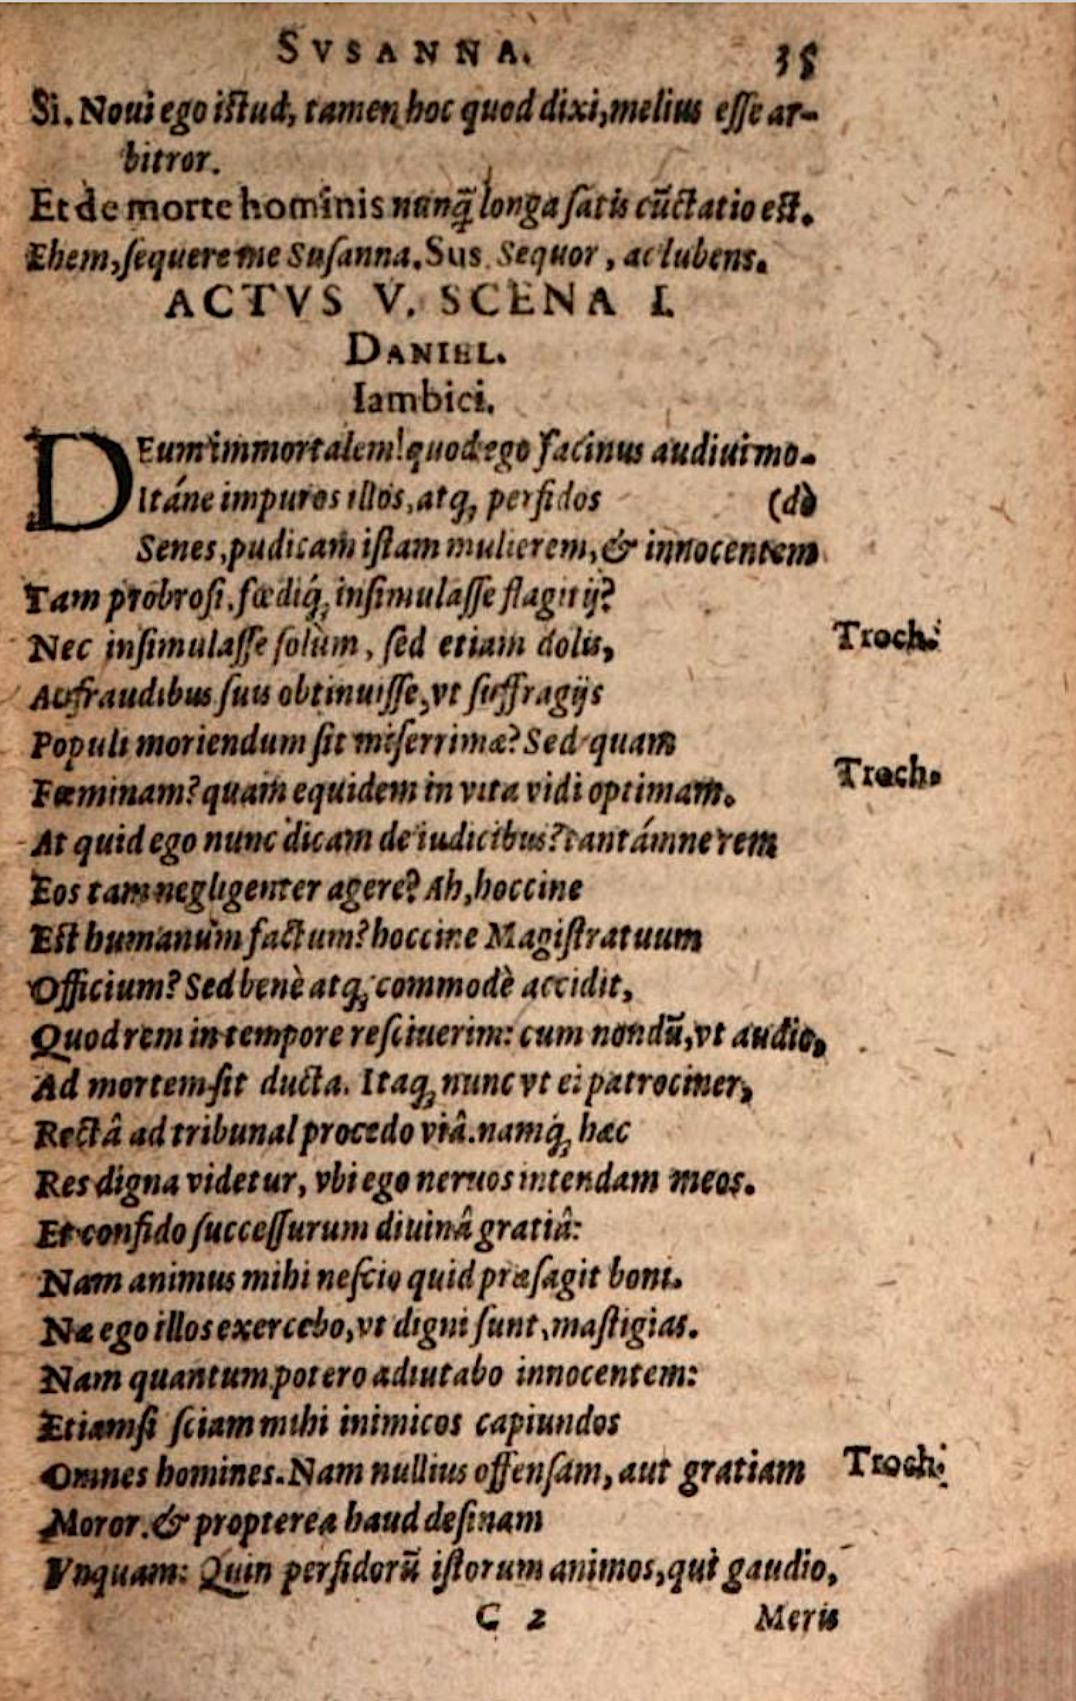 SVSANNA. 35
Si. Noui ego istud, tamen hoc quod dixi, melius esse ar-
bitror.
Et de morte hominis nunq̃ longa satis cũctatio est.
Ehem, sequere me Susanna. Sus. Sequor, ac lubens.
ACTVS V. SCENA I.
DANIEL.
Iambici.
DEum immortalem! quod ego facinus audiui mo-
Itáne impuros illos, atq; perfidos (dò
Senes, pudicam istam mulierem, & innocentem
Tam probrosi, fœdiq́; insimulasse flagitij?
Nec insimulasse solùm, sed etiam dolis, Troch.
Ac fraudibus suis obtinuisse, vt suffragijs
Populi moriendum sit miserrimæ? Sed quam
Fœminam? quam equidem in vita vidi optimam. Troch.
At quid ego nunc dicam de iudicibus? tantámne rem
Eos tam negligenter agere? Ah, hoccine
Est humanum factum? hoccine Magistratuum
Officium? Sed benè atq; commodè accidit,
Quod rem in tempore resciuerim: cum nondũ, vt audio,
Ad mortem sit ducta. Itaq; nunc vt ei patrociner,
Rectâ ad tribunal procedo viâ. namq́; hæc
Res digna videtur, vbi ego neruos intendam meos.
Et confido successurum diuinâ gratiâ:
Nam animus mihi nescio quid præsagit boni.
Næ ego illos exercebo, vt digni sunt, mastigias.
Nam quantum potero adiutabo innocentem:
Etiamsi sciam mihi inimicos capiundos
Omnes homines. Nam nullius offensam, aut gratiam Troch.
Moror. & propterea haud desinam
Vnquam: Quin perfidorũ istorum animos, qui gaudio,
C 2 Meris